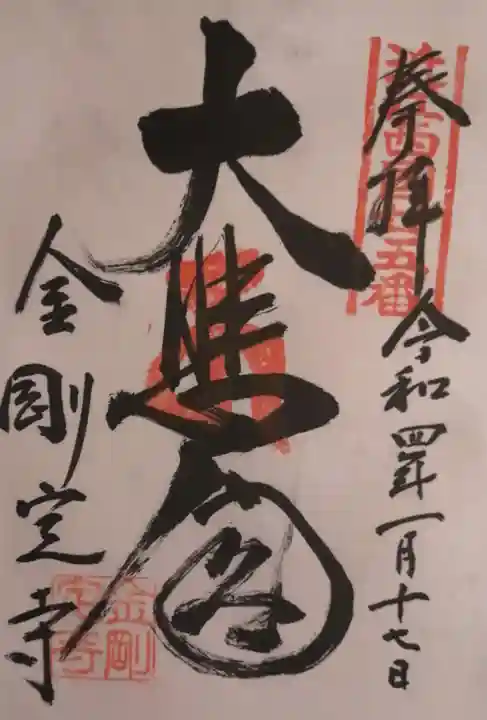 奉拝 令和四年一月十七日
五番
大悲閣
金剛定寺
金剛定寺